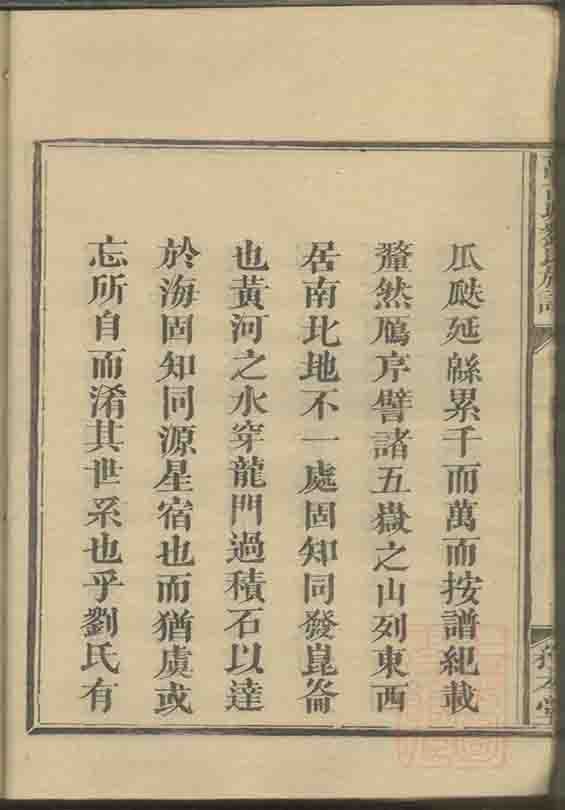 瓜瓞延緜累千而萬而按譜紀載
釐然鴈序譬諸五嶽之山列東西
居南北地不一處固知同發崑崙
也黃河之水穿龍門過積石以達
於海固知同源星宿也而猶虞或
忘所自而淆其世系也乎劉氏有